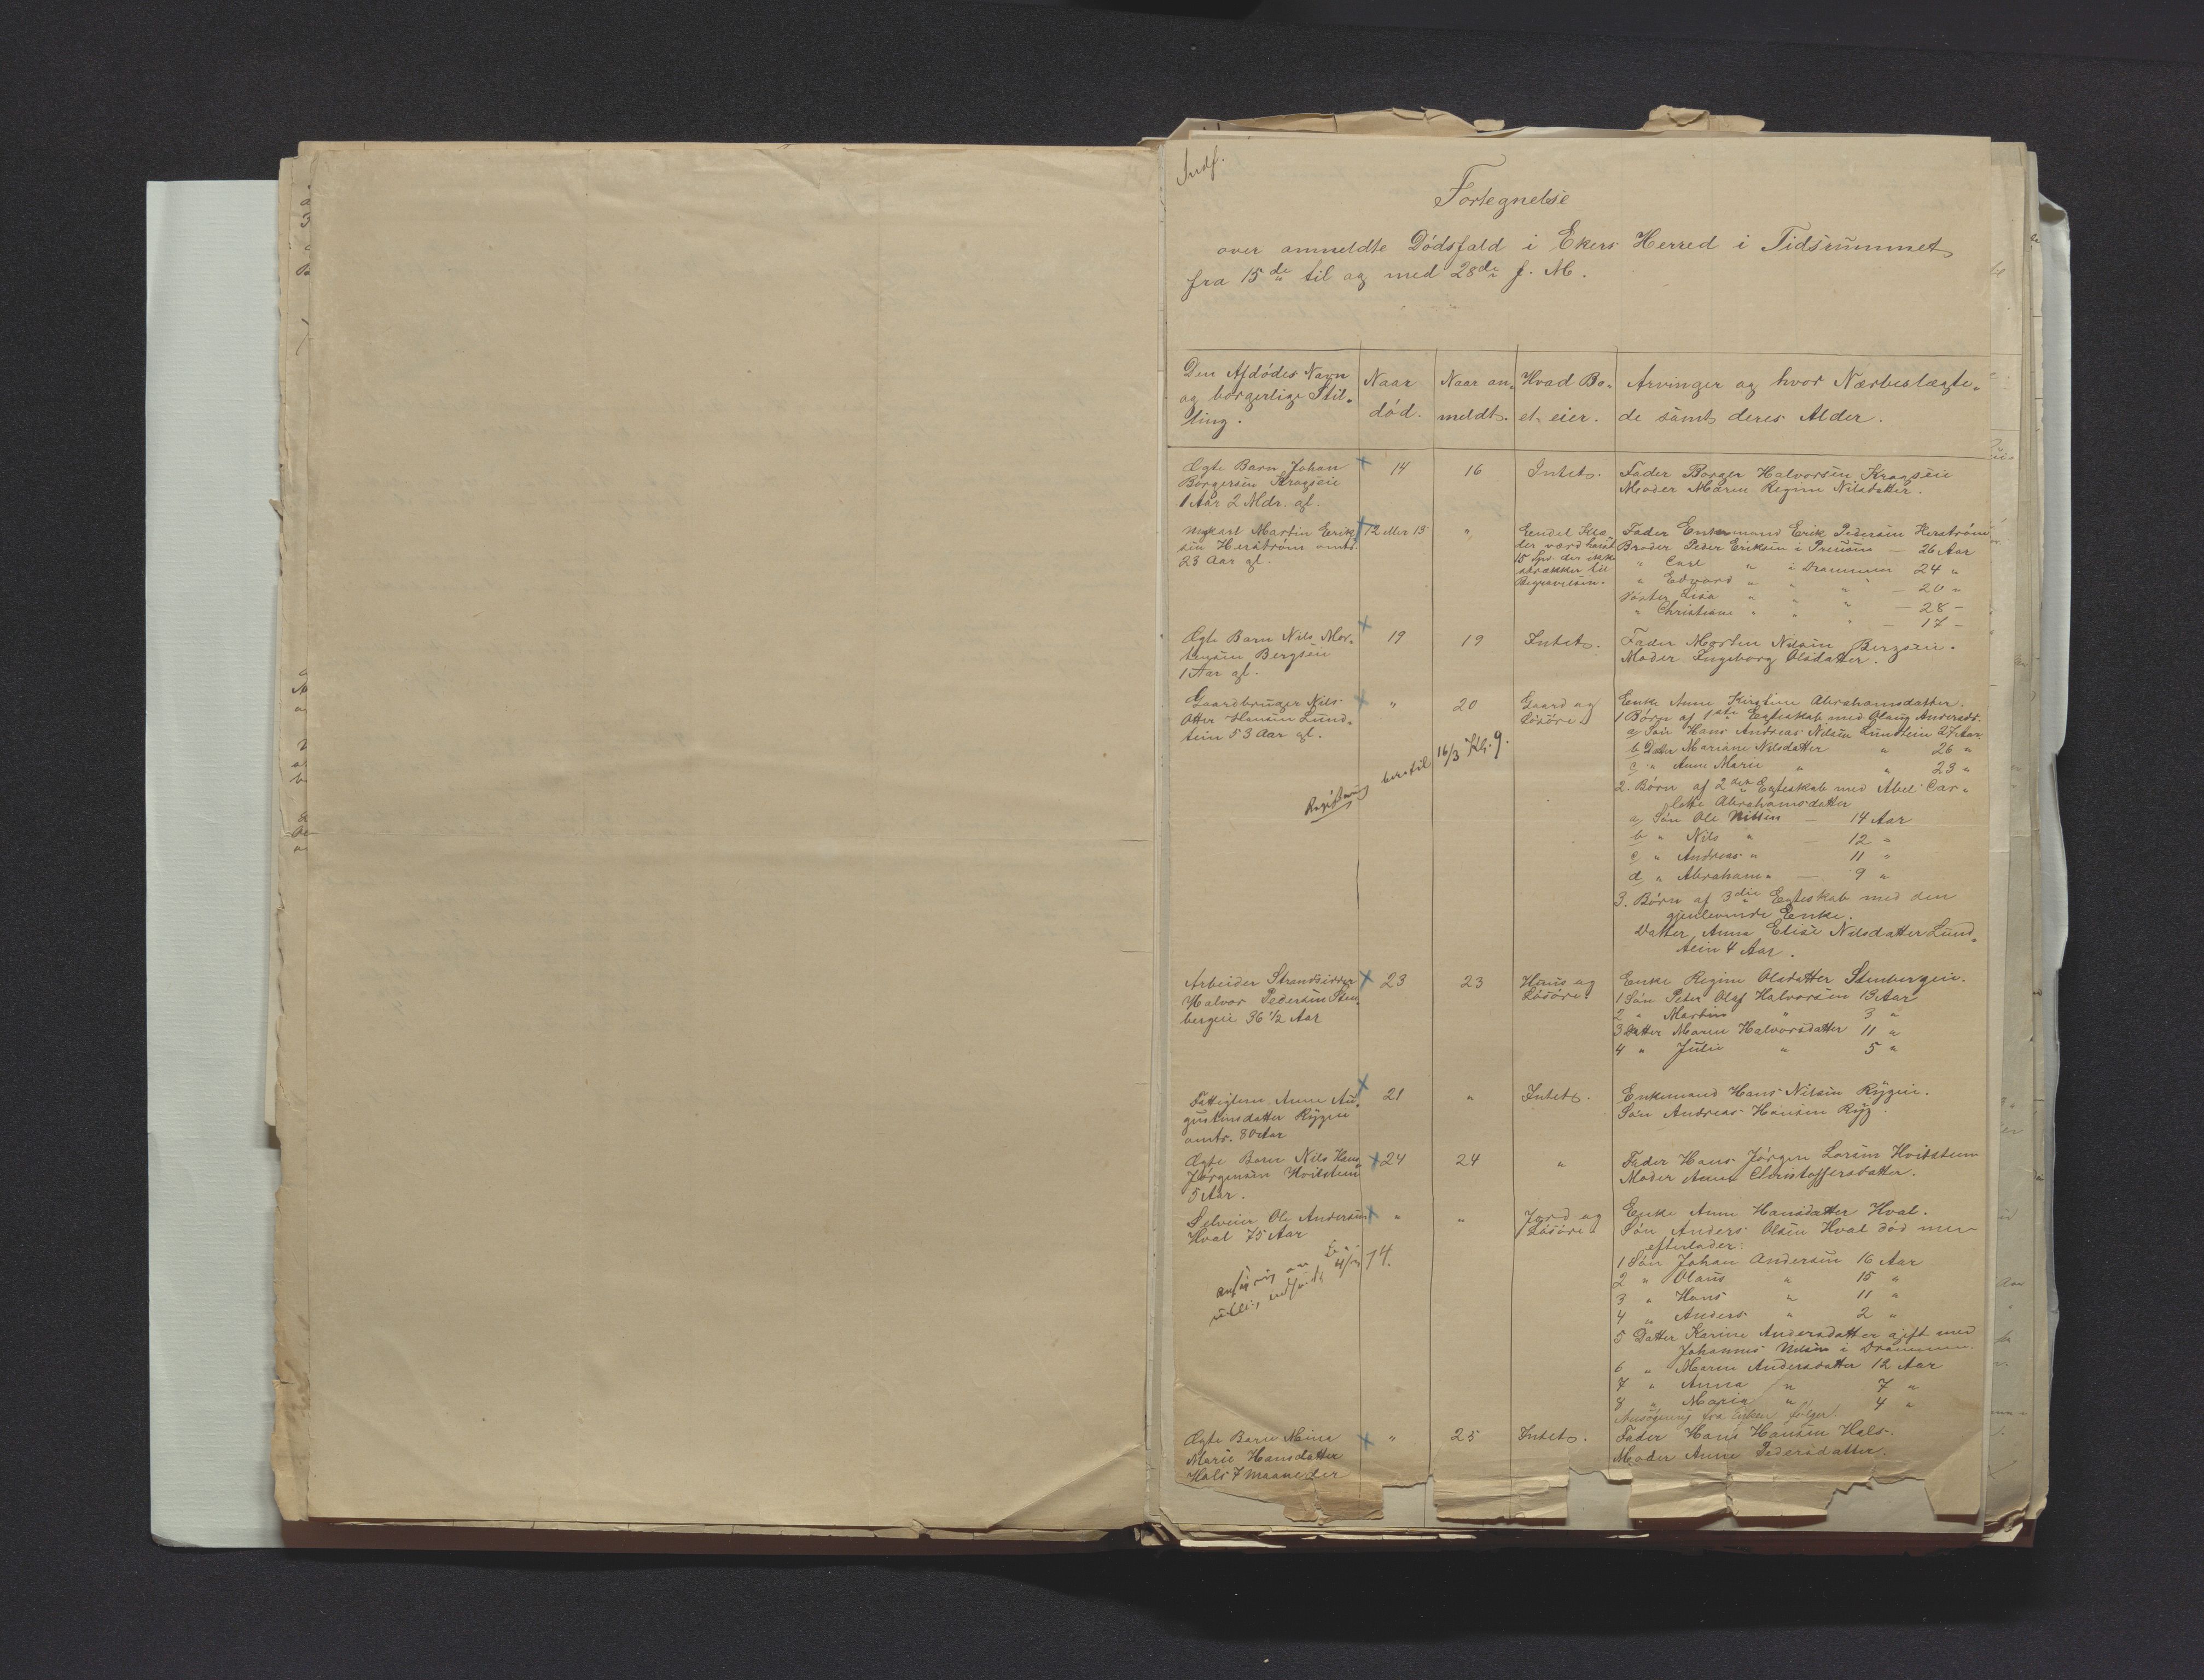 Indf.
Fortegnelse
over anmeldte Dödsfald i Ekers Herred i Tidsrummet
fra 15de til og med 28de f. M.
Den Afdödes Navn
og borgerlige Stil-
ling.
Naar
död.
Naar an-
meldt.
Hvad Bo-
et eier.
Arvinger og hvor Nærbeslægte-
de samt deres Alder.
Ægte Barn Johan
Borgersen Kragseie
1 Aar 2 Mdr. gl.
14
16
Intet.
Fader Borger Halvorsen Kragseie
Moder Maren Regine Nilsdatter.
Ungkarl Martin Erik-
sen Herström omtr.
23 Aar gl.
12 eller 13
"
Eendel Klæ-
der værd
15 Spd der ikke
strækker til
Begravelsen.
Fader Enkemand Erik Pedersen Herström
Broder Peder Eriksen i — 26 Aar
" Carl " i Drammen 24 "
" Edvard " " " — 20 "
Söster Lisa " " " — 28 —
" Christiane " " " — 17 —
Ægte Barn Nils Mor-
tensen Bergseie
1 Aar gl.
19
19
Intet.
Fader Morten Nilsen Bergseie.
Moder Ingeborg Olsdatter.
Gaardbruger Nils
Otter Hansen Lund-
tein 53 Aar gl.
"
20
Gaard og
Lösöre
Registrering bera til 16/3 Kl. 9.
Enke Anne Kirstine Abrahamsdatter.
1 Börn af 1ste Egteskab med Olaug Andersdr.
a Sön Hans Andreas Nilsen Lundtein 27 Aar
b Datter Mariane Nilsdatter " 26 "
c " Anne Marie " " 23 "
2. Börn af 2det Egteskab med Abel Car-
lotte Abrahamsdatter
a Sön Ole Nilsen — 14 Aar
b " Nils " — 12 "
c " Andreas " 11 "
d " Abraham " — 9 "
3. Börn af 3die Egteskab med den
gjenlevende Eenke.
Datter Anna Elise Nilsdatter Lund-
tein 4 Aar.
Arbeider Strandsidder
Halvor Pedersen Sten-
bergeie 36 1/2 Aar
23
23
Huus og
Lösöre.
Enke Regine Olsdatter Stenbergeie.
1 Sön Peter Olaf Halvorsen 13 Aar
2 " Martin " 3 "
3 Datter Maren Halvorsdatter 11 "
4 " Julie " 5 "
Fattiglem Anne Au-
gustinsdatter Rygeie
omtr. 80 Aar
21
"
Intet.
Enkemand Hans Nilsen Rygeie.
Sön Andreas Hansen Ryg.
Ægte Barn Nils Hans
Jörgensen Hvilstein
5 Aar.
24
24
"
Fader Hans Jörgen Larsen Hvitstein
Moder Anne Christoffersdatter.
Selveier Ole Andersen
Hval 75 Aar
"
"
Jord og
Lösöre
74.
Enke Anne Hansdatter Hval.
Sön Anders Olsen Hval död men
efterlader:
1 Sön Johan Andersen 16 Aar
2 " Olaus " 15 "
3 " Hans " 11 "
4 " Anders " 2 "
5 Datter Karine Andersdatter gift med
Johannes Nilsen i Drammen.
6 " Maren Andersdatter 12 Aar
7 " Anna " 7 "
8 " Maria " 4 "
Ansögning fra Enken fölger
Ægte Barn Mina
Marie Hansdatter
Hals 7 Maaneder
"
25
Intet.
Fader Hans Hansen Hals.
Moder Anne Pedersdatter.